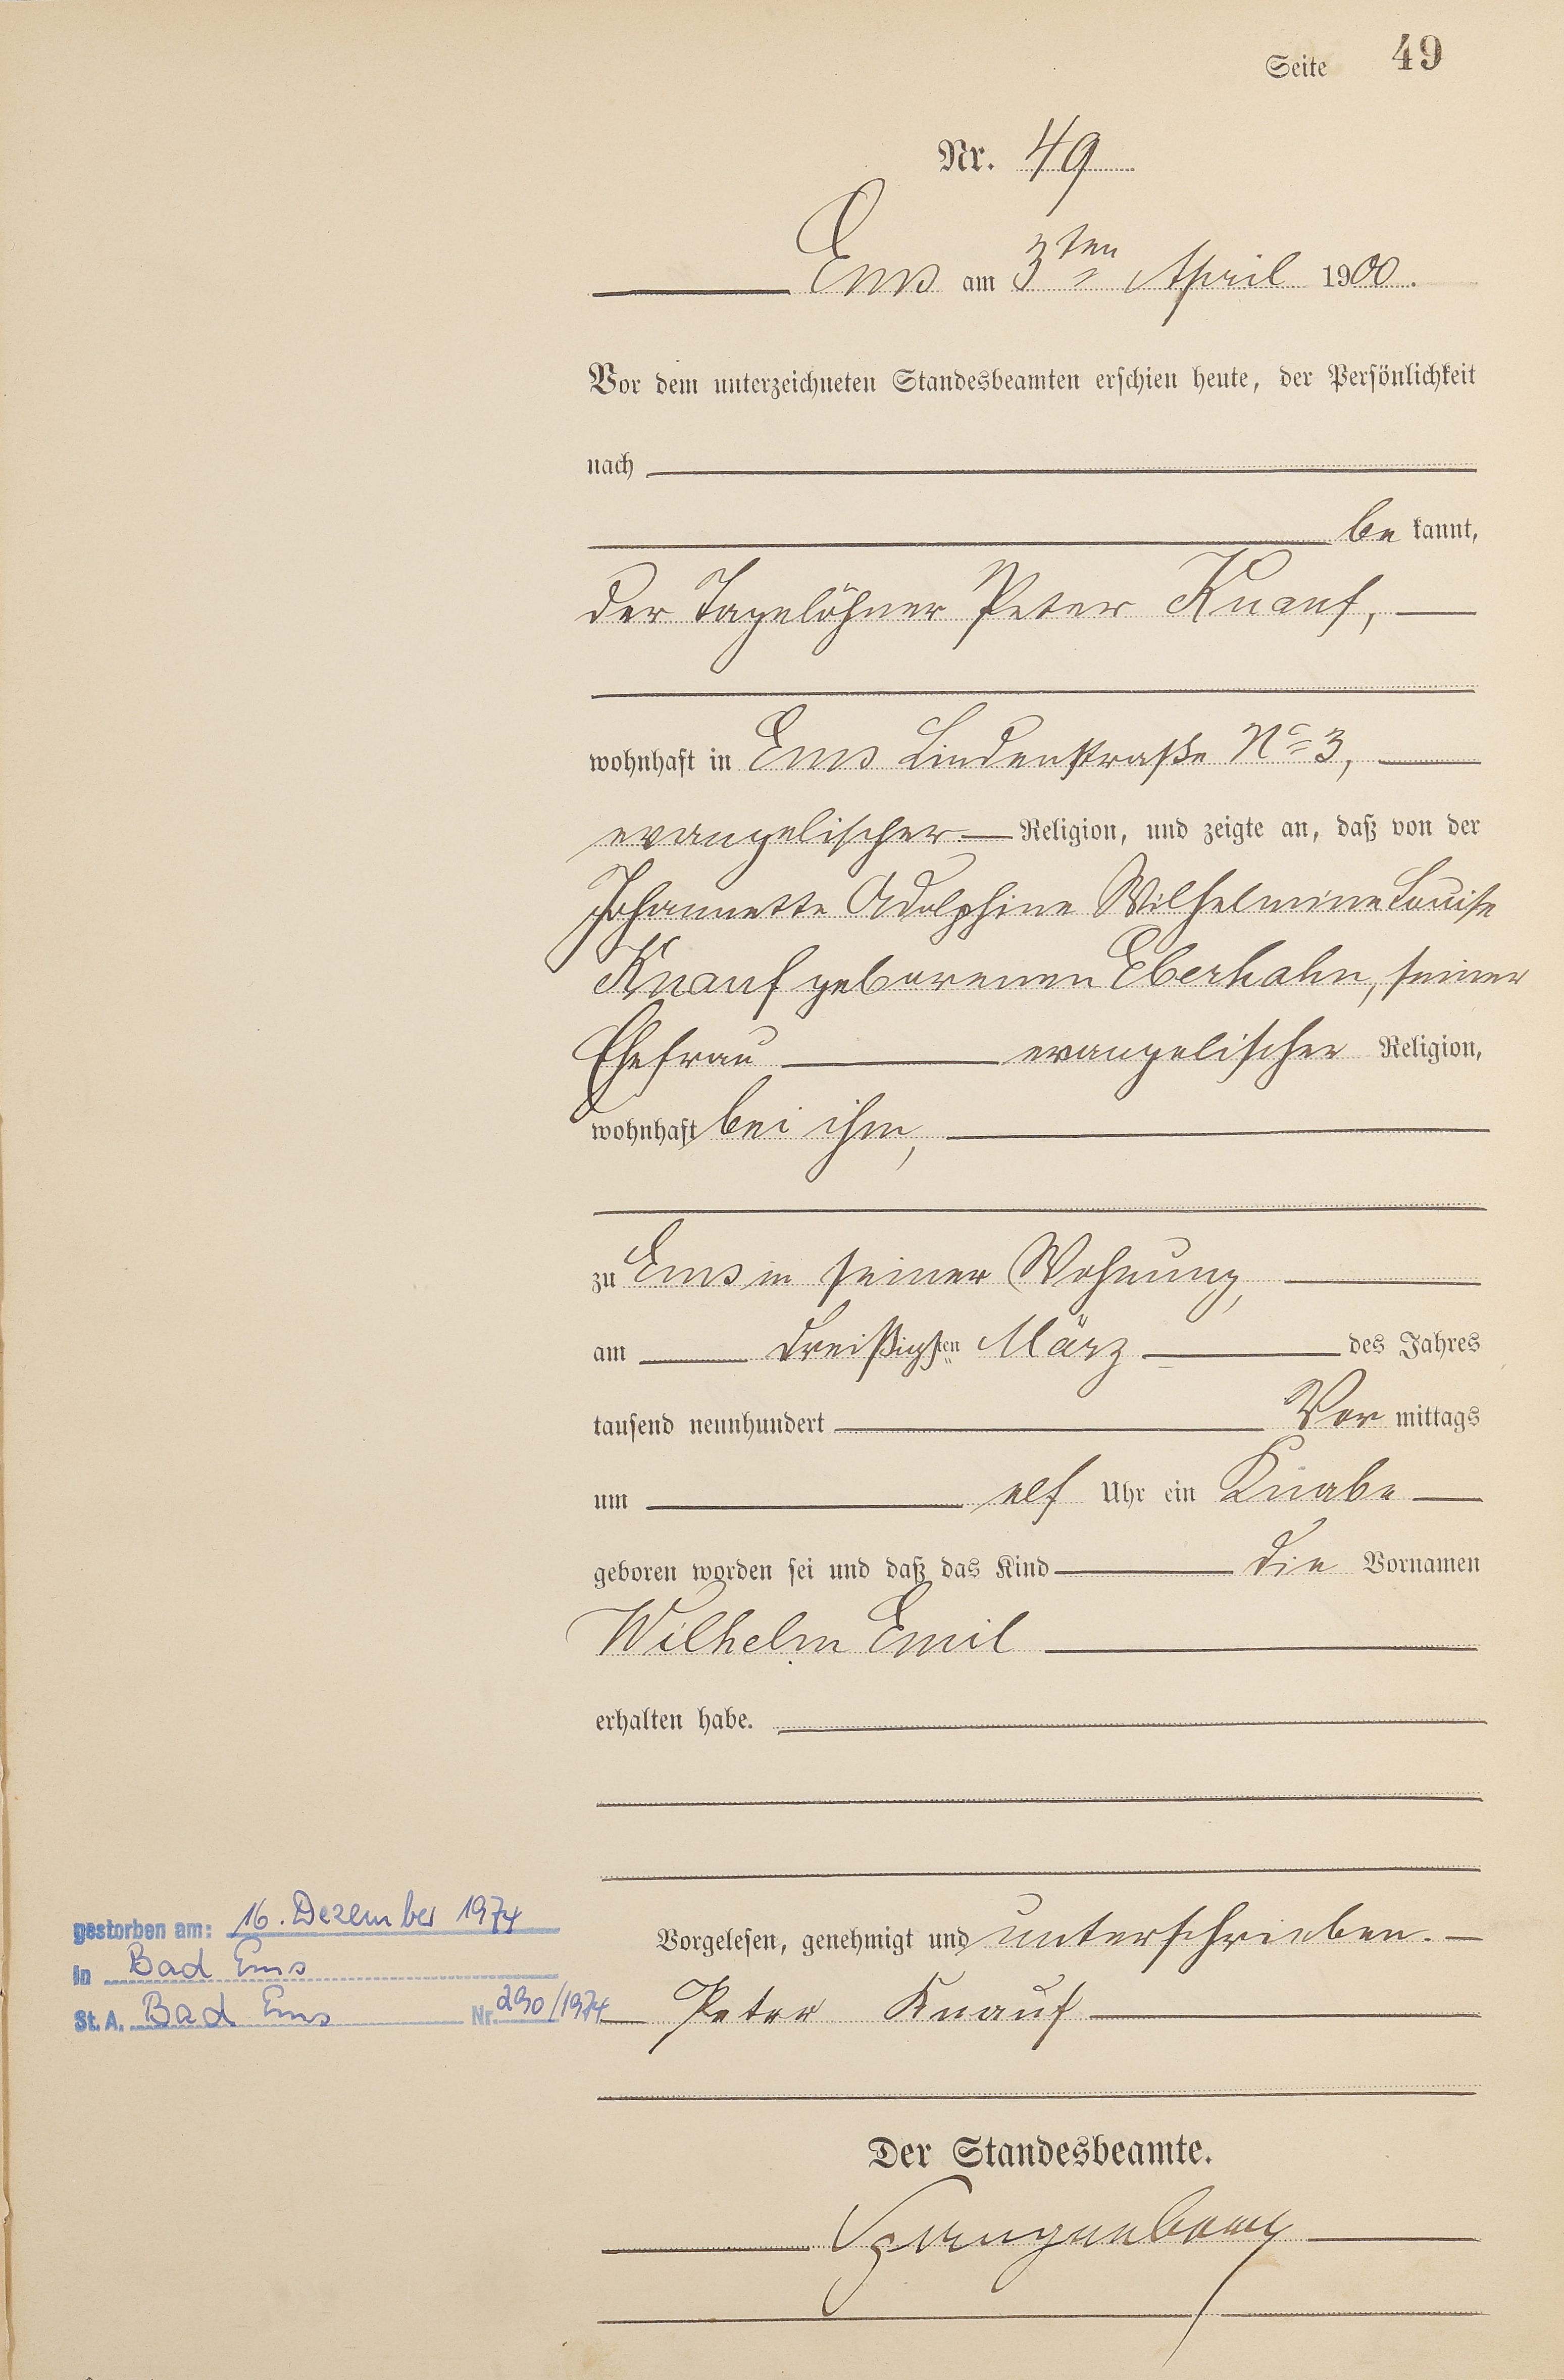 Seite 49
Nr. 49
Ems am 3ten April 1900.
Vor dem unterzeichneten Standesbeamten erschien heute, der Persönlichkeit
nach
be kannt,
der Tagelöhner Peter Knauf,
wohnhaft in Ems Lindenstraße No 3,
evangelischer Religion, und zeigte an, daß von der
Johannette Adolphine Wilhelmine Louise
Knauf geborenen Eberhahn, seiner
Ehefrau evangelischer Religion,
wohnhaft bei ihm,
zu Ems in seiner Wohnung,
am dreißigsten März des Jahres
tausend neunhundert Vor mittags
um elf Uhr ein Knabe
geboren worden sei und daß das Kind die Vornamen
Wilhelm Emil
erhalten habe.
Vorgelesen, genehmigt und unterschrieben.
Peter Knauf
Der Standesbeamte.
gestorben am: 16. Dezember 1974
in Bad Ems
St. A. Bad Ems Nr. 290/1974